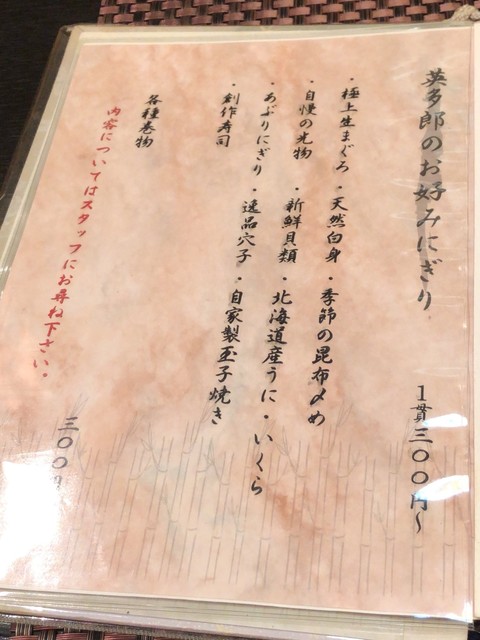 英多郎のお好みにぎり 1貫三〇〇円〜
・極上生まぐろ・天然白身・季節の昆布〆め
・自慢の光物・新鮮貝類・北海道産うに・いくら
・あぶりにぎり・逸品穴子・自家製玉子焼き
・創作寿司
各種巻物 三〇〇円
内容についてはスタッフにお尋ね下さい。